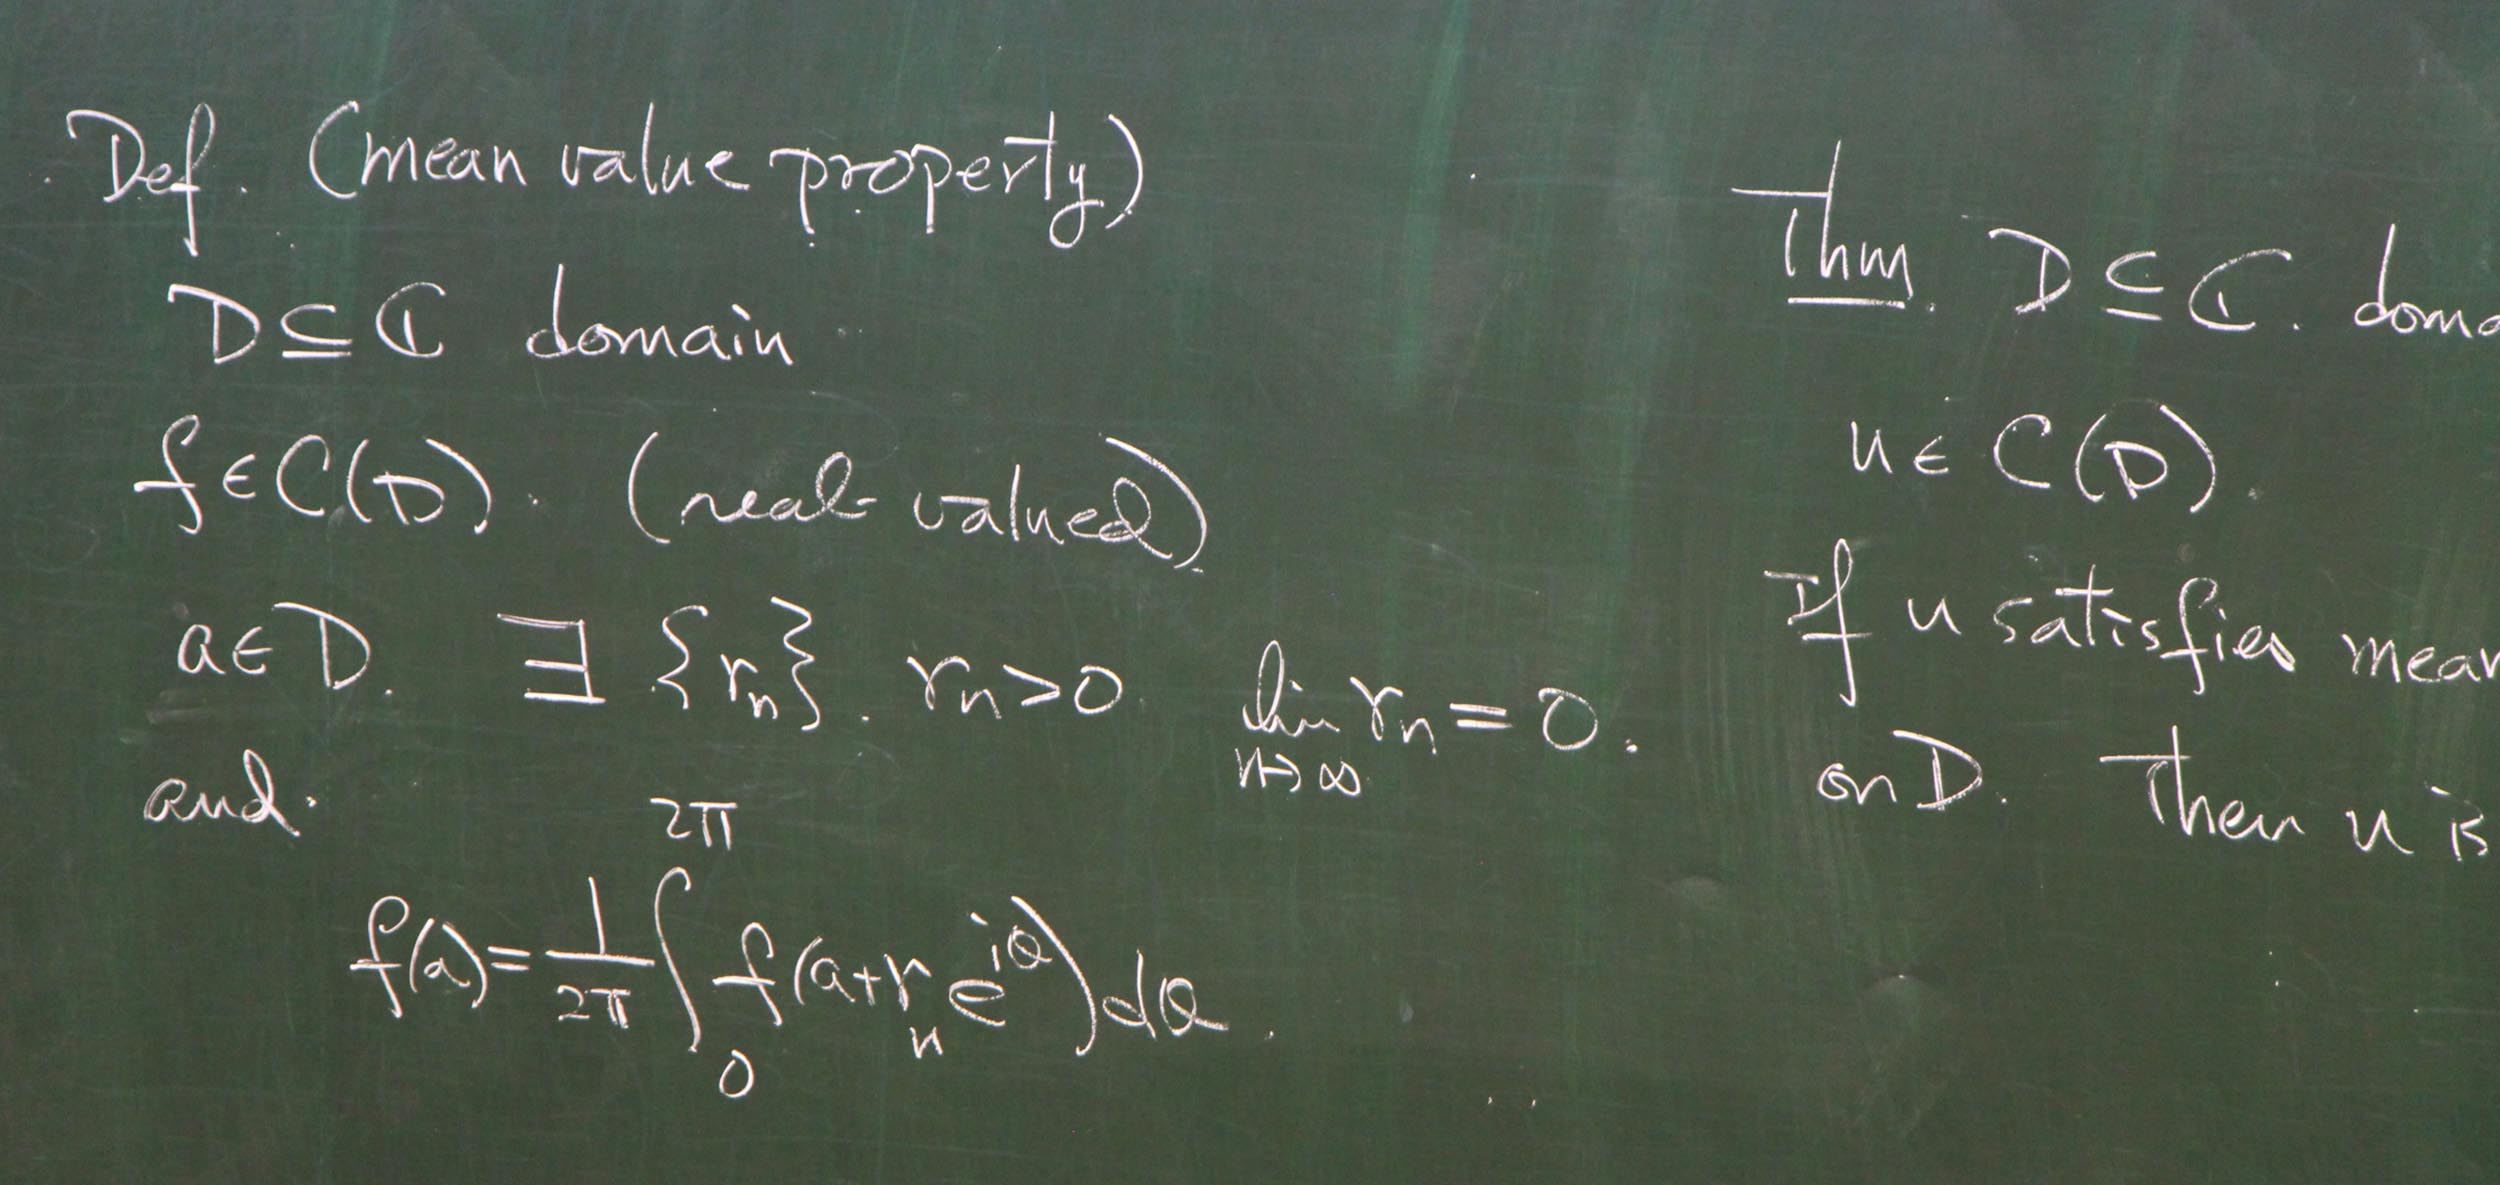 Def. (mean value property)
D ⊆ ℂ domain
f ∈ C(D). (real-valued)
a ∈ D. ∃ {rₙ}. rₙ > 0 lim rₙ = 0.
n→∞
and.
f(a) = 1/2π ∫₀^2π f(a + rₙ e^iθ) dθ.
Thm. D ⊆ ℂ.
u ∈ C(D).
If u satisfies mean
on D. Then u is